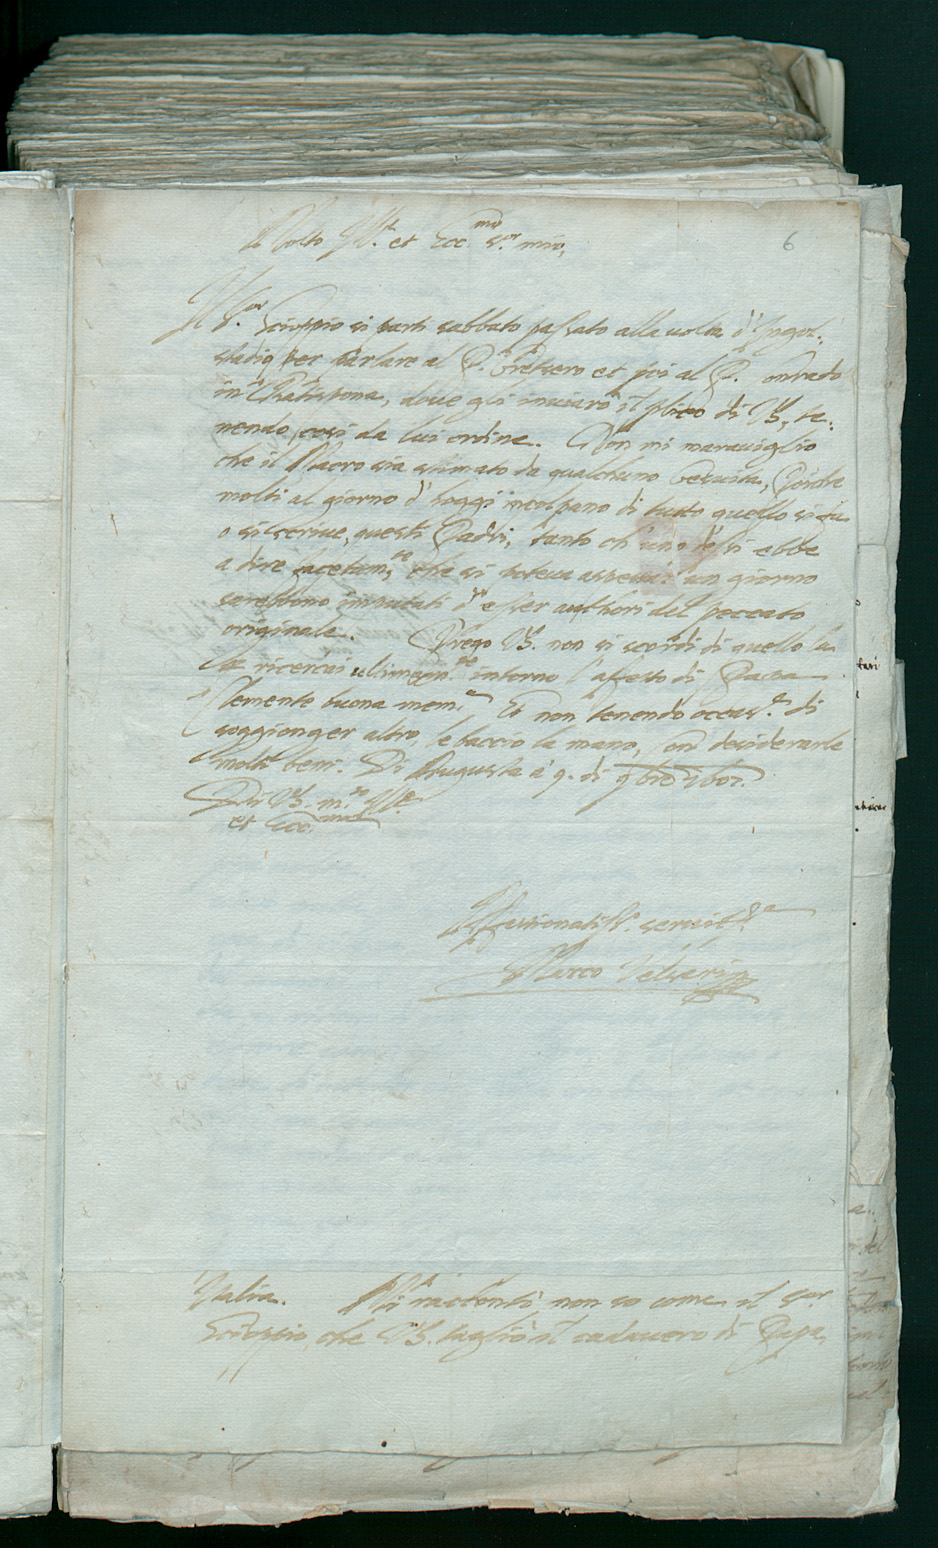 Molto Ill.e et Ecc.mo s.or mio,
6
Il S.or Scioppio si partì sabbato passato alla uolta d'Ingol-
stadio per parlare al P. Gretsero et poi al P. Conrado
in Ratispona, doue gli inuiarò il plico di V.S. te-
nendo così da lui ordine. Non mi marauiglio
che il Macro sia stimato da qualchuno Gesuita, Poiche
molti al giorno d'hoggi incolpano di tutto quello si fa
o si scriue, questi Padri, tanto ch'uno di essi ebbe
a dire facetam.te che si poteua aspettar un giorno
sarebbono imputati d'esser authori del peccato
originale. Prego V.S. non si scordi di quello la
ricercai ultimam.te intorno l'affetto di Papa
Clemente buona mem.a Et non tenendo occas.e di
soggionger altro, le baccio la mano, con desiderarle
molto bene. Di Augusta à 9. di 9bre 1607.
Di V.S. m.to Ill.e
et Ecc.ma
Affettionatiss.o seruit.e
Marco Velseri
Italia. Mi raccontò, non so come il S.or
Scioppio, che V.S. tagliò il cadauero di Papa